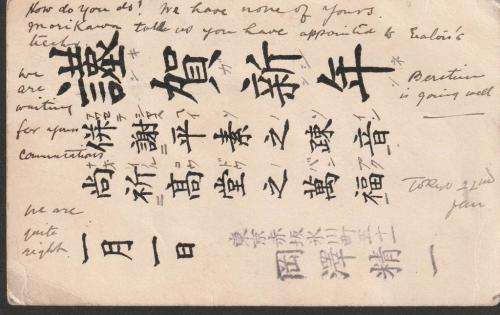 How do you do! We have none of yours.
Morikawa told us you have appointed to
謹賀新年
We
are
waiting
for your
communications
is going well
併謝平素之疎音
尚祈髙堂之萬福
We are
quite
right
Tokyo 22nd
Jan
一月一日
東京赤坂氷川町五十一
岡澤精一